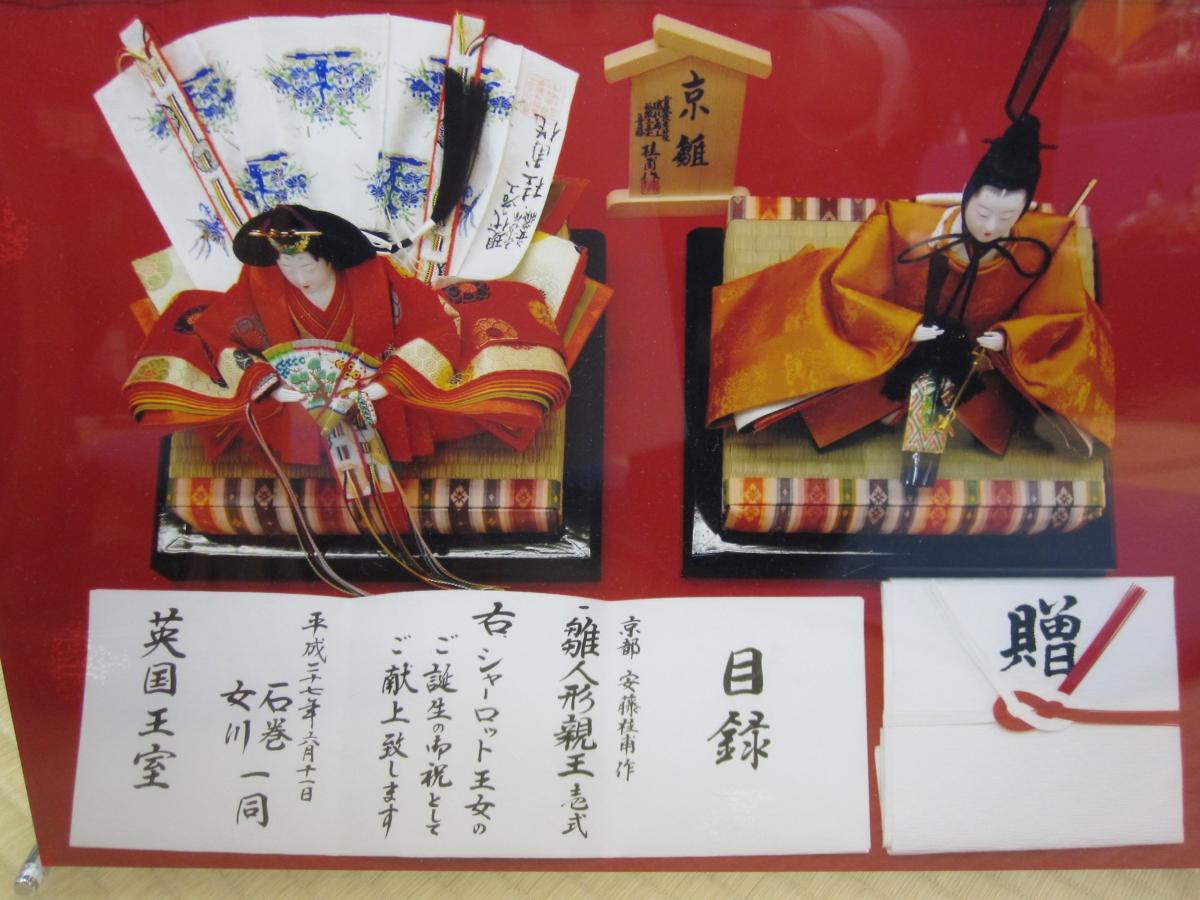 京雛
桂甫作
現代の名工
桂甫作
贈
目録
京都 安藤桂甫作
一雛人形親王壱式
右シャーロット王女の
ご誕生の御祝として
ご献上致します
平成二十七年六月十一日
石巻
女川 一同
英国王室